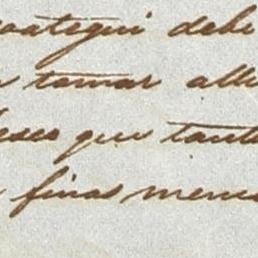 oategui debi
tomar alli
deseo que tanto
finas mem